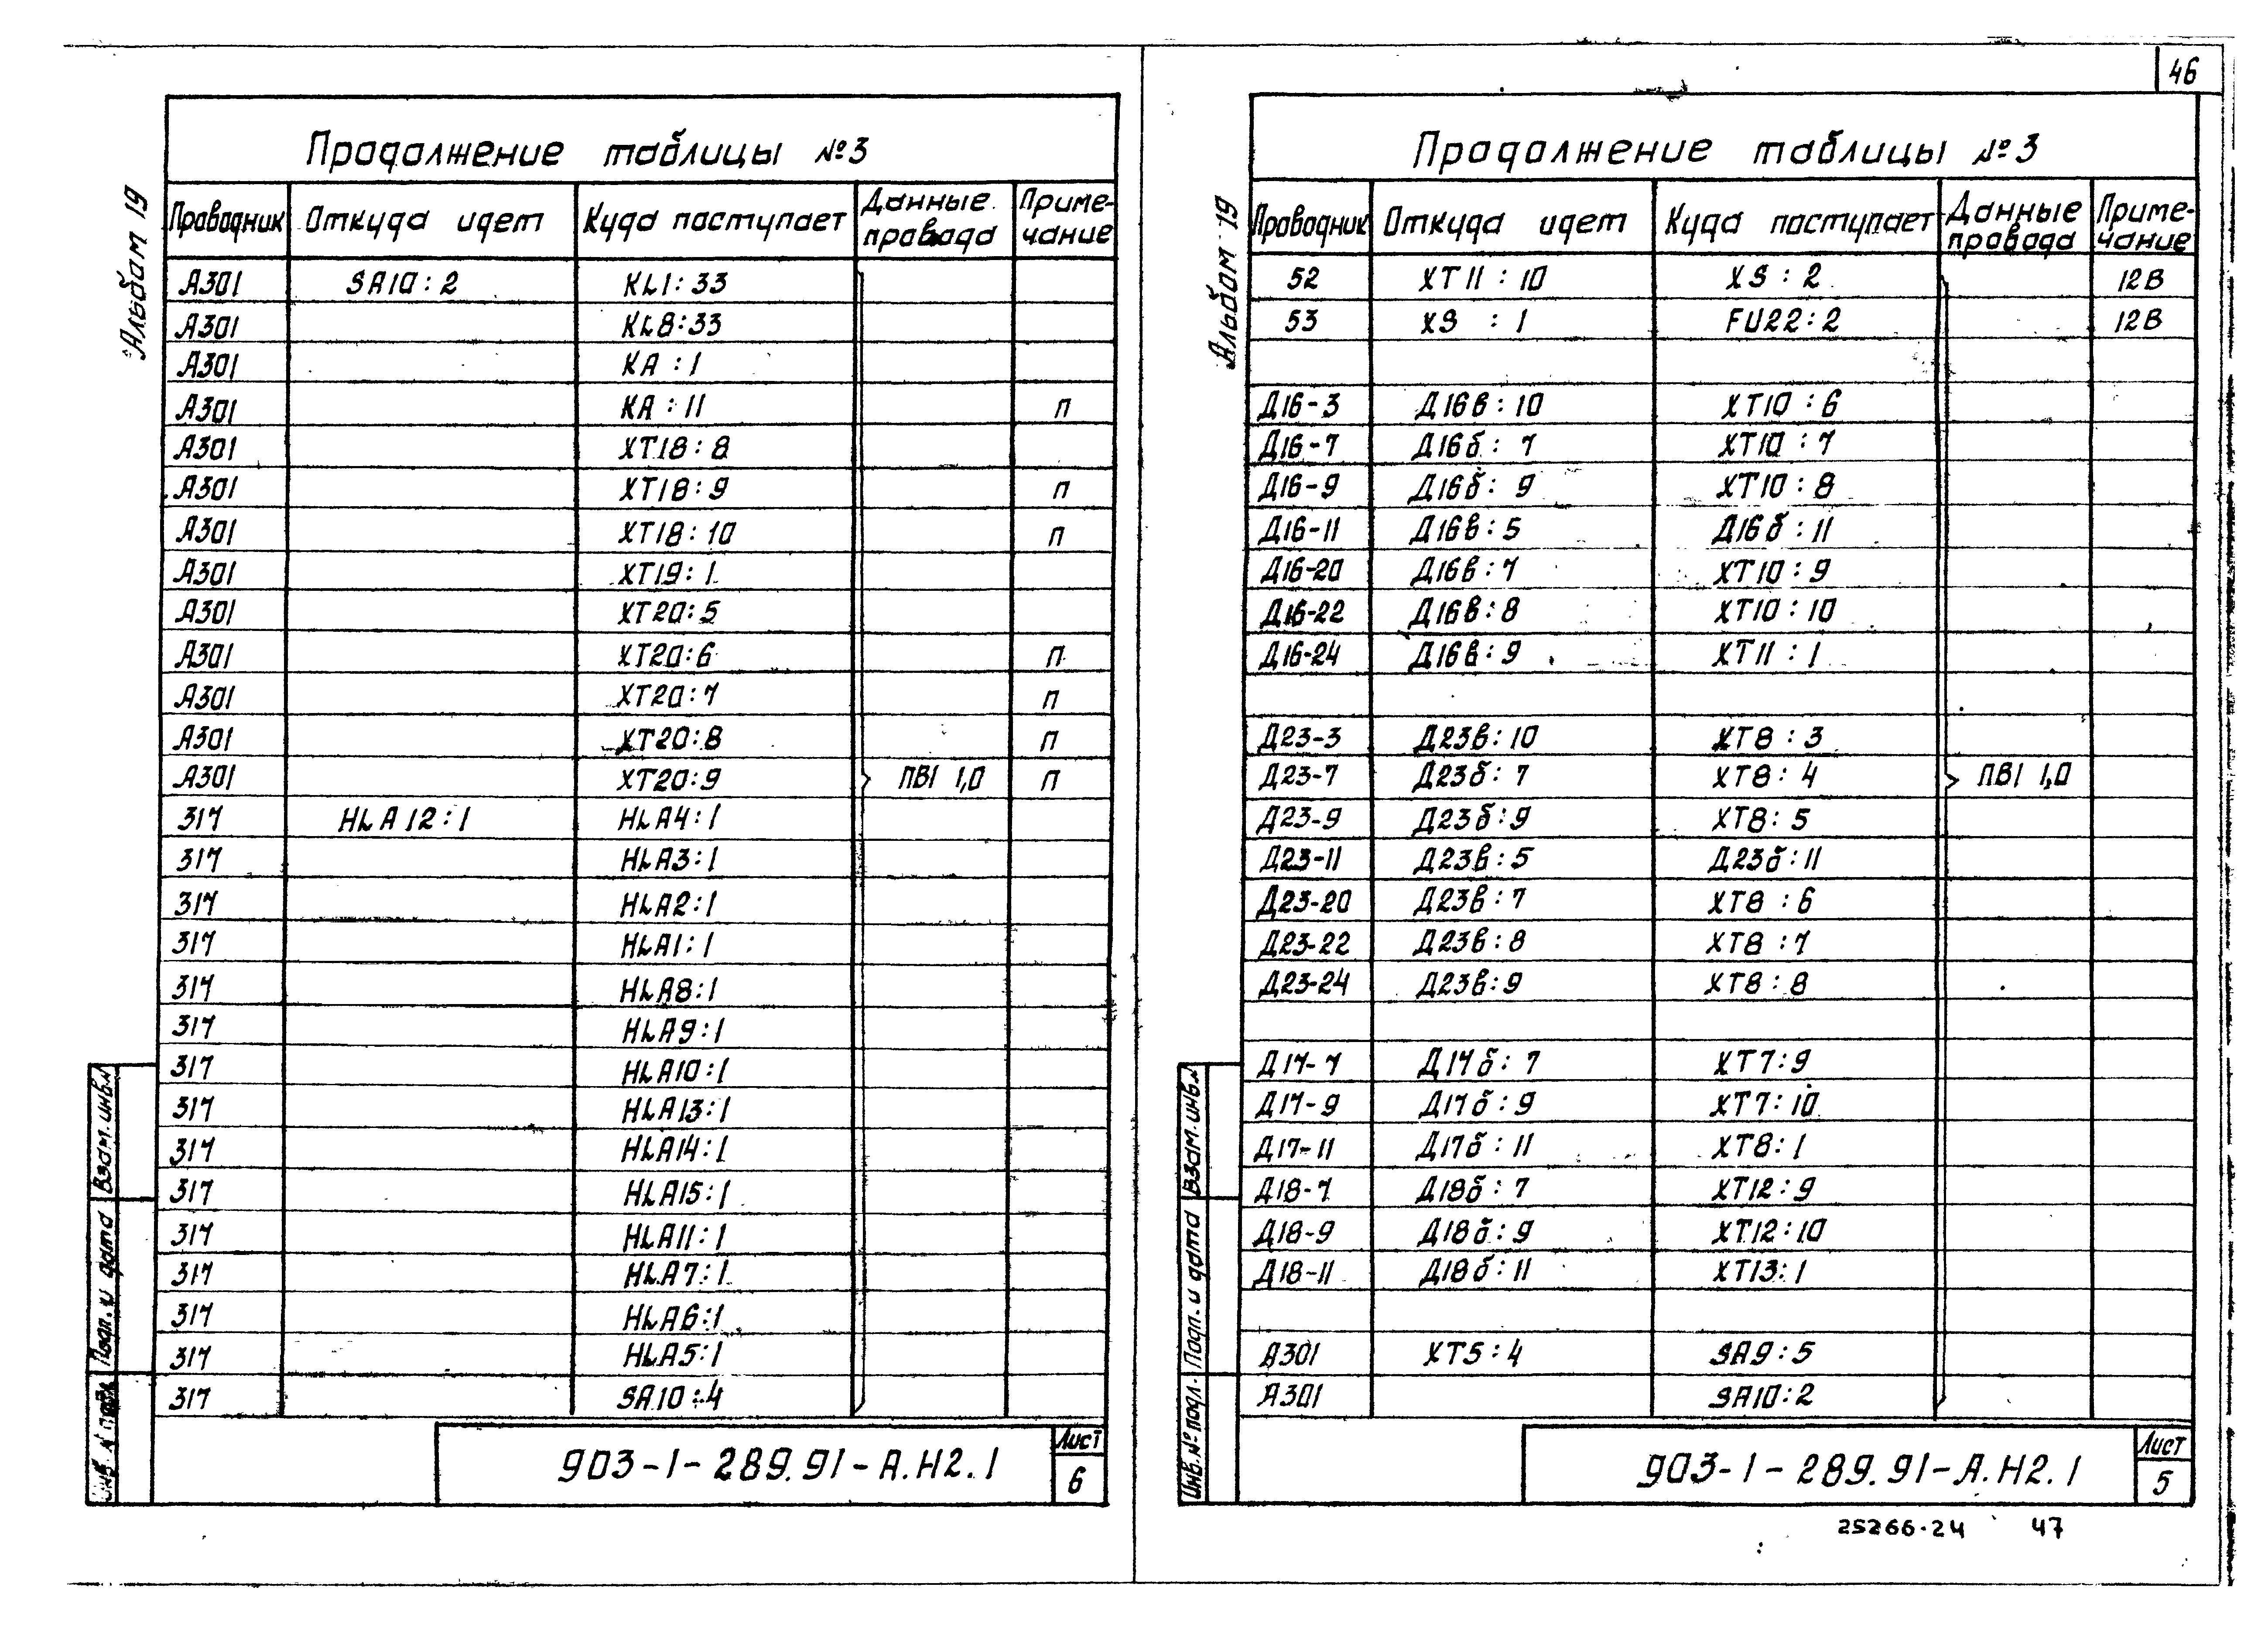 46
Альбом 19
Продолжение таблицы №3
Проводник Откуда идет Куда поступает Данные провода Примечание
А301 SA10:2 KL1:33
А301 KL8:33
А301 KA:1
А301 KA:11 п
А301 XT18:8
А301 XT18:9 п
А301 XT18:10 п
А301 XT19:1
А301 XT20:5
А301 XT20:6 п
А301 XT20:7 п
А301 XT20:8 п
А301 XT20:9 ПВ1 1,0 п
317 HLA12:1 HLA4:1
317 HLA3:1
317 HLA2:1
317 HLA1:1
317 HLA8:1
317 HLA9:1
317 HLA10:1
317 HLA13:1
317 HLA14:1
317 HLA15:1
317 HLA11:1
317 HLA7:1
317 HLA6:1
317 HLA5:1
317 SA10:4
Взам. инв.№
Подп. и дата
Инв. № подл.
903-1-289.91-А.Н2.1
Лист
6
Альбом 19
Продолжение таблицы №3
Проводник Откуда идет Куда поступает Данные провода Примечание
52 XT11:10 XS:2 12В
53 XS:1 FU22:2 12В
Д16-3 Д16в:10 XT10:6
Д16-7 Д16б:7 XT10:7
Д16-9 Д16б:9 XT10:8
Д16-11 Д16в:5 Д16б:11
Д16-20 Д16в:7 XT10:9
Д16-22 Д16в:8 XT10:10
Д16-24 Д16в:9 XT11:1
Д23-3 Д23в:10 XT8:3
Д23-7 Д23б:7 XT8:4 ПВ1 1,0
Д23-9 Д23б:9 XT8:5
Д23-11 Д23в:5 Д23б:11
Д23-20 Д23в:7 XT8:6
Д23-22 Д23в:8 XT8:7
Д23-24 Д23в:9 XT8:8
Д17-7 Д17б:7 XT7:9
Д17-9 Д17б:9 XT7:10
Д17-11 Д17б:11 XT8:1
Д18-7 Д18б:7 XT12:9
Д18-9 Д18б:9 XT12:10
Д18-11 Д18б:11 XT13:1
А301 XT5:4 SA9:5
А301 SA10:2
Взам. инв.№
Подп. и дата
Инв.№ подл.
903-1-289.91-А.Н2.1
Лист
5
25266-24 47